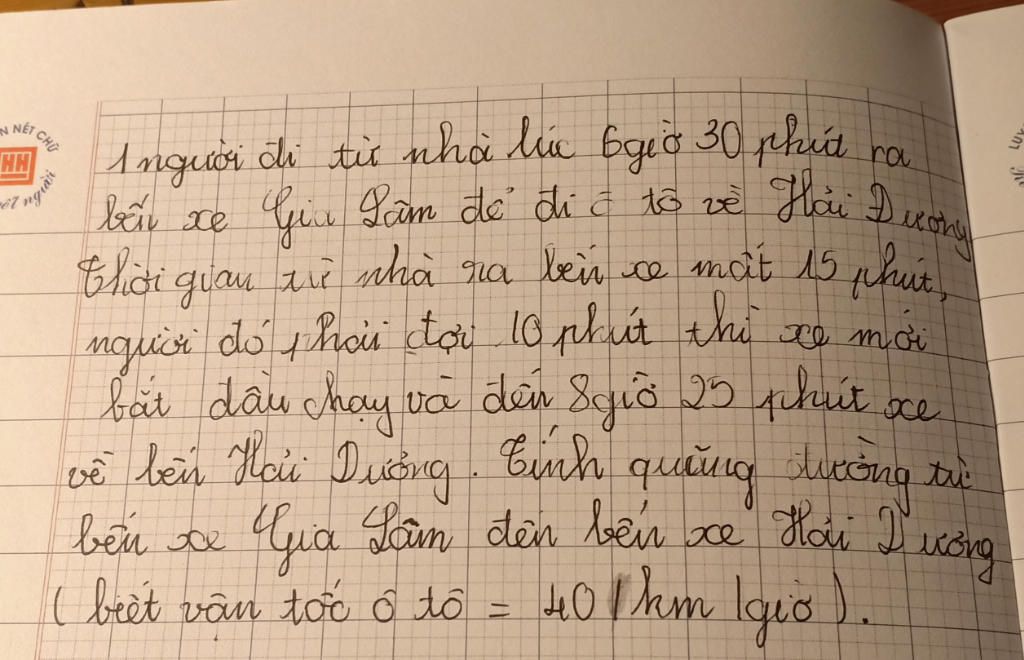 N NÉT CHỮ
HH
nết người
LUY
1 người đi từ nhà lúc 6 giờ 30 phút ra
bến xe Gia Lâm để đi ô tô về Hải Dương
thời gian từ nhà ra bến xe mất 15 phút,
người đó phải đợi 10 phút thì xe mới
bắt đầu chạy và đến 8 giờ 25 phút xe
về bến Hải Dương. Tính quãng đường từ
bến xe Gia Lâm đến bến xe Hải Dương
( biết vận tốc ô tô = 40 km/giờ ).